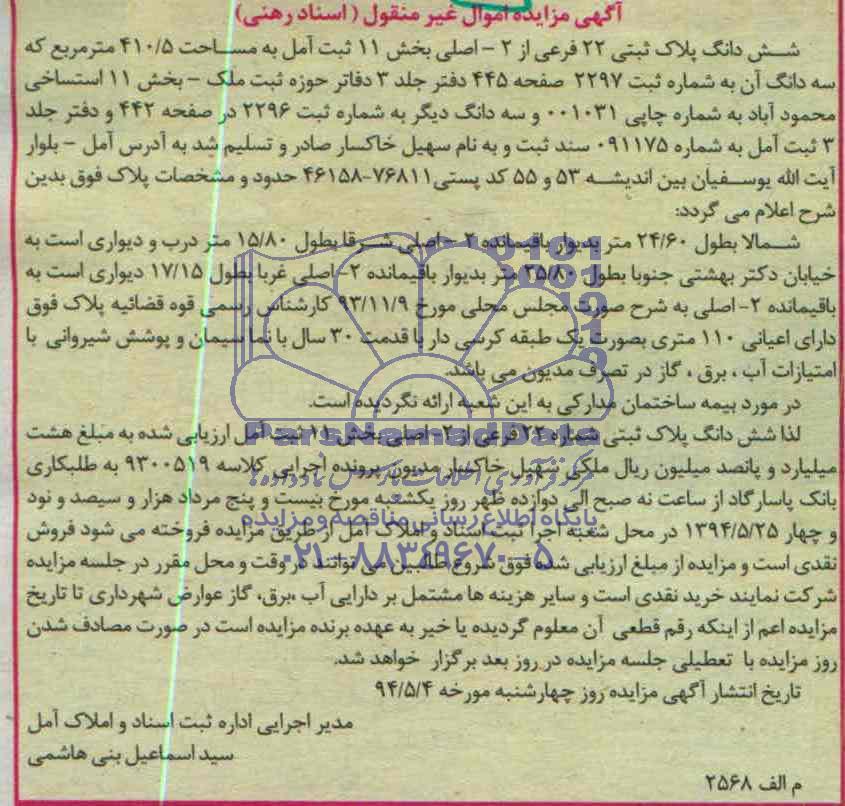 آگهی مزایده اموال غیر منقول (اسناد رهنی)
شش دانگ پلاک ثبتی ۲۲ فرعی از ۲ – اصلی بخش ۱۱ ثبت آمل به مساحت ۴۱۰/۵ مترمربع که
سه دانگ آن به شماره ثبت ۲۲۹۷ صفحه ۴۴۵ دفتر جلد ۳ دفاتر حوزه ثبت ملک – بخش ۱۱ استساخی
محمود آباد به شماره چاپی ۰۰۱۰۳۱ و سه دانگ دیگر به شماره ثبت ۲۲۹۶ در صفحه ۴۴۲ و دفتر جلد
۳ ثبت آمل به شماره ۰۹۱۱۷۵ سند ثبت و به نام سهیل خاکسار صادر و تسلیم شد به آدرس آمل – بلوار
آیت الله یوسفیان بین اندیشه ۵۳ و ۵۵ کد پستی۷۶۸۱۱-۴۶۱۵۸ حدود و مشخصات پلاک فوق بدین
شرح اعلام می گردد:
شمالا بطول ۲۴/۶۰ متر بدیوار باقیمانده ۲ – اصلی شرقا بطول ۱۵/۸۰ متر درب و دیواری است به
خیابان دکتر بهشتی جنوبا بطول ۲۵/۸۰ متر بدیوار باقیمانده ۲- اصلی غربا بطول ۱۷/۱۵ دیواری است به
باقیمانده ۲- اصلی به شرح صورت مجلس محلی مورخ ۹۳/۱۱/۹ کارشناس رسمی قوه قضائیه پلاک فوق
دارای اعیانی ۱۱۰ متری بصورت یک طبقه کرسی دار با قدمت ۳۰ سال با نما سیمان و پوشش شیروانی با
امتیازات آب ، برق ، گاز در تصرف مدیون می باشد.
در مورد بیمه ساختمان مدارکی به این شعبه ارائه نگردیده است.
لذا شش دانگ پلاک ثبتی شماره ۲۲ فرعی از ۲- اصلی بخش ۱۱ ثبت آمل ارزیابی شده به مبلغ هشت
میلیارد و پانصد میلیون ریال ملکی سهیل خاکسار مدیون پرونده اجرایی کلاسه ۹۳۰۰۵۱۹ به طلبکاری
بانک پاسارگاد از ساعت نه صبح الی دوازده ظهر روز یکشنبه مورخ بیست و پنج مرداد هزار و سیصد و نود
و چهار ۱۳۹۴/۵/۲۵ در محل شعبه اجرا ثبت اسناد و املاک آمل از طریق مزایده فروخته می شود فروش
نقدی است و مزایده از مبلغ ارزیابی شده فوق شروع طالبین می توانند در وقت و محل مقرر در جلسه مزایده
شرکت نمایند خرید نقدی است و سایر هزینه ها مشتمل بر دارایی آب ،برق، گاز عوارض شهرداری تا تاریخ
مزایده اعم از اینکه رقم قطعی آن معلوم گردیده یا خیر به عهده برنده مزایده است در صورت مصادف شدن
روز مزایده با تعطیلی جلسه مزایده در روز بعد برگزار خواهد شد.
تاریخ انتشار آگهی مزایده روز چهارشنبه مورخه ۹۴/۵/۴
مدیر اجرایی اداره ثبت اسناد و املاک آمل
سید اسماعیل بنی هاشمی
م الف ۲۵۶۸
ParsNamadData
پایگاه اطلاع رسانی مناقصه و مزایده
۰۲۱-۸۸۳۴۹۶۷۰-۵